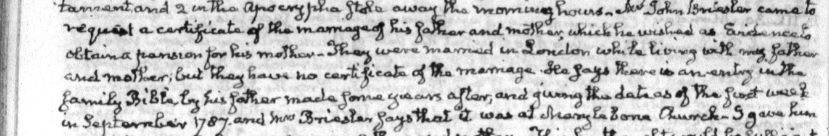 tament and 2 in the Apocrypha stole away the morning hours. Mr John Briesler came to
request a certificate of the marriage of his father and mother, which he wished as Evidence to
obtain a pension for his mother. They were married in London while living with my father
and mother; but they have no certificate of the marriage. He says there is an entry in the
family Bible, by his father made some years after, and giving the date as of the first week
in September 1787. and Mrs Briesler says that it was at Mary le bone Church. I gave him